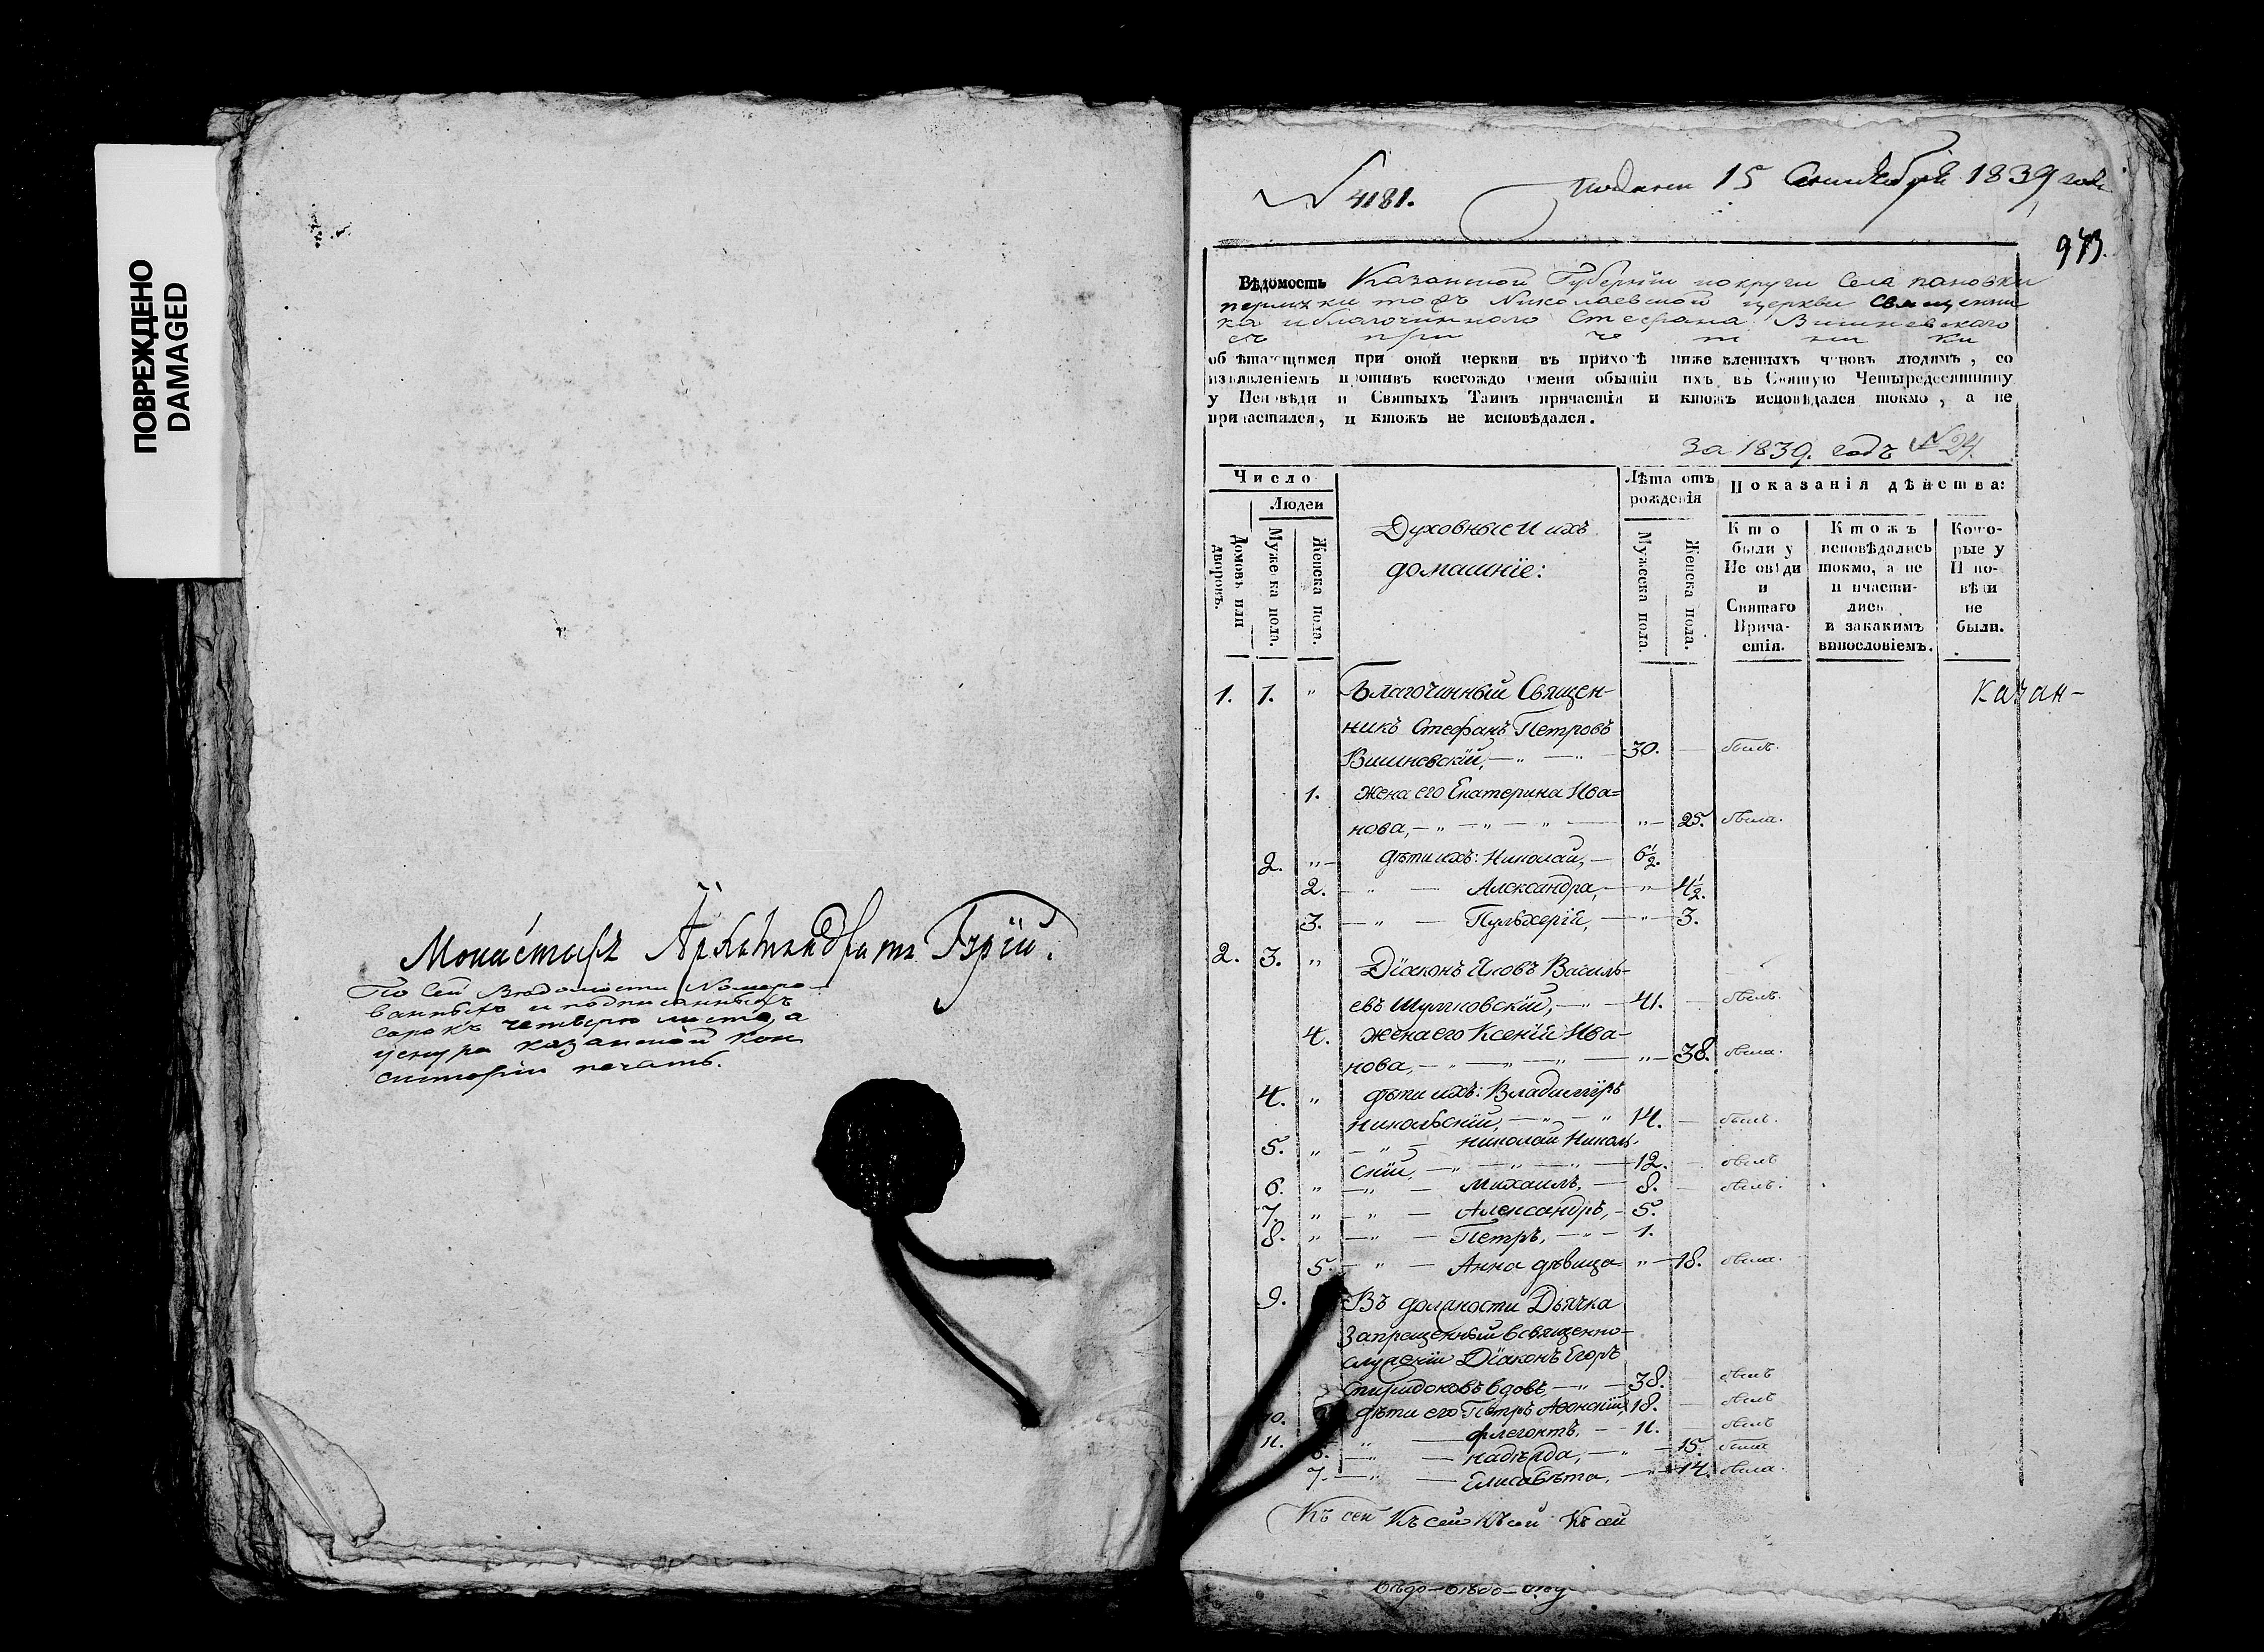 ПОВРЕЖДЕНО
DAMAGED
Монастырь Архимандритъ Гурій.
По Сей Ведомости Номеро-
ванныхъ и подписанныхъ
сорокъ четыре листа, а
у сего казанской кон
систоріи печать.
№ 4181.
Подана 15 Сентября 1839 года
943.
Вѣдомость Казанской Губерніи и округи Села пановки
тожъ Николаевской церкви священни
ка и благочиннаго Стефана Вишневскаго
съ при че т ни ки
обрѣтающимся при оной церкви въ приходѣ ниже явленныхъ чиновъ людямъ, со
изъявленіемъ противъ коегождо имени бытіи ихъ въ Святую Четыредесятницу
у Исповѣди и Святыхъ Таинъ причастія и ктожъ исповѣдался токмо, а не
причастился, и ктожъ не исповѣдался.
За 1839. годъ №24.
Число
Людей
Домовъ или дворовъ.
Мужеска пола.
Женска пола.
Духовные и ихъ
домашніе:
Лѣта отъ рожденія
Мужеска пола.
Женска пола.
Показанія дѣйства:
Кто были у Исповѣди и Святаго Причастія.
Ктожъ исповѣдались токмо, а не причастились и закакимъ винословіемъ.
Которые у Исповѣди не были.
1. 1. " Благочинный Священ- Казан-
никъ Стефанъ Петровъ
Вишневскій, — " — " — 30. — былъ.
1. жена его Екатерина Ива=
нова, — " — " — " — " — 25. была.
2. " — дѣти ихъ: Николай, — 6½.
2. — " — Александра, — " — 4½.
3. — " — Пульхерій, — " — 3.
2. 3. " Діаконъ Яковъ Василь-
евъ — " — 41. — былъ.
4. жена его Ксенія Ива-
нова, — " — " — 38. была.
4. " дѣти ихъ: Владиміръ
Никольскій, — " — " 14. — былъ.
5. " — " — Николай Николь-
скій, — " — " — " — 12. — былъ
6. " — " — Михаилъ, — 8. — былъ.
7. " — " — Александръ, — 5.
8. " — " — Петръ, — " — 1.
5. — " — Анна дѣвица " — 18. была.
9. Въ должности Дьячка
Запрещенный въ священно-
служеніи Діаконъ Егоръ
Спиридоновъ вдовъ, — " — 38. — былъ
10. дѣти его Петръ 18. — былъ
11. " — Флегонтъ, — 11. — былъ
6. — " — надѣжда, — " — 15. была
7. — " — Елисавѣта, — " — 14. была.
Къ сей Къ сей Къ сей Къ сей